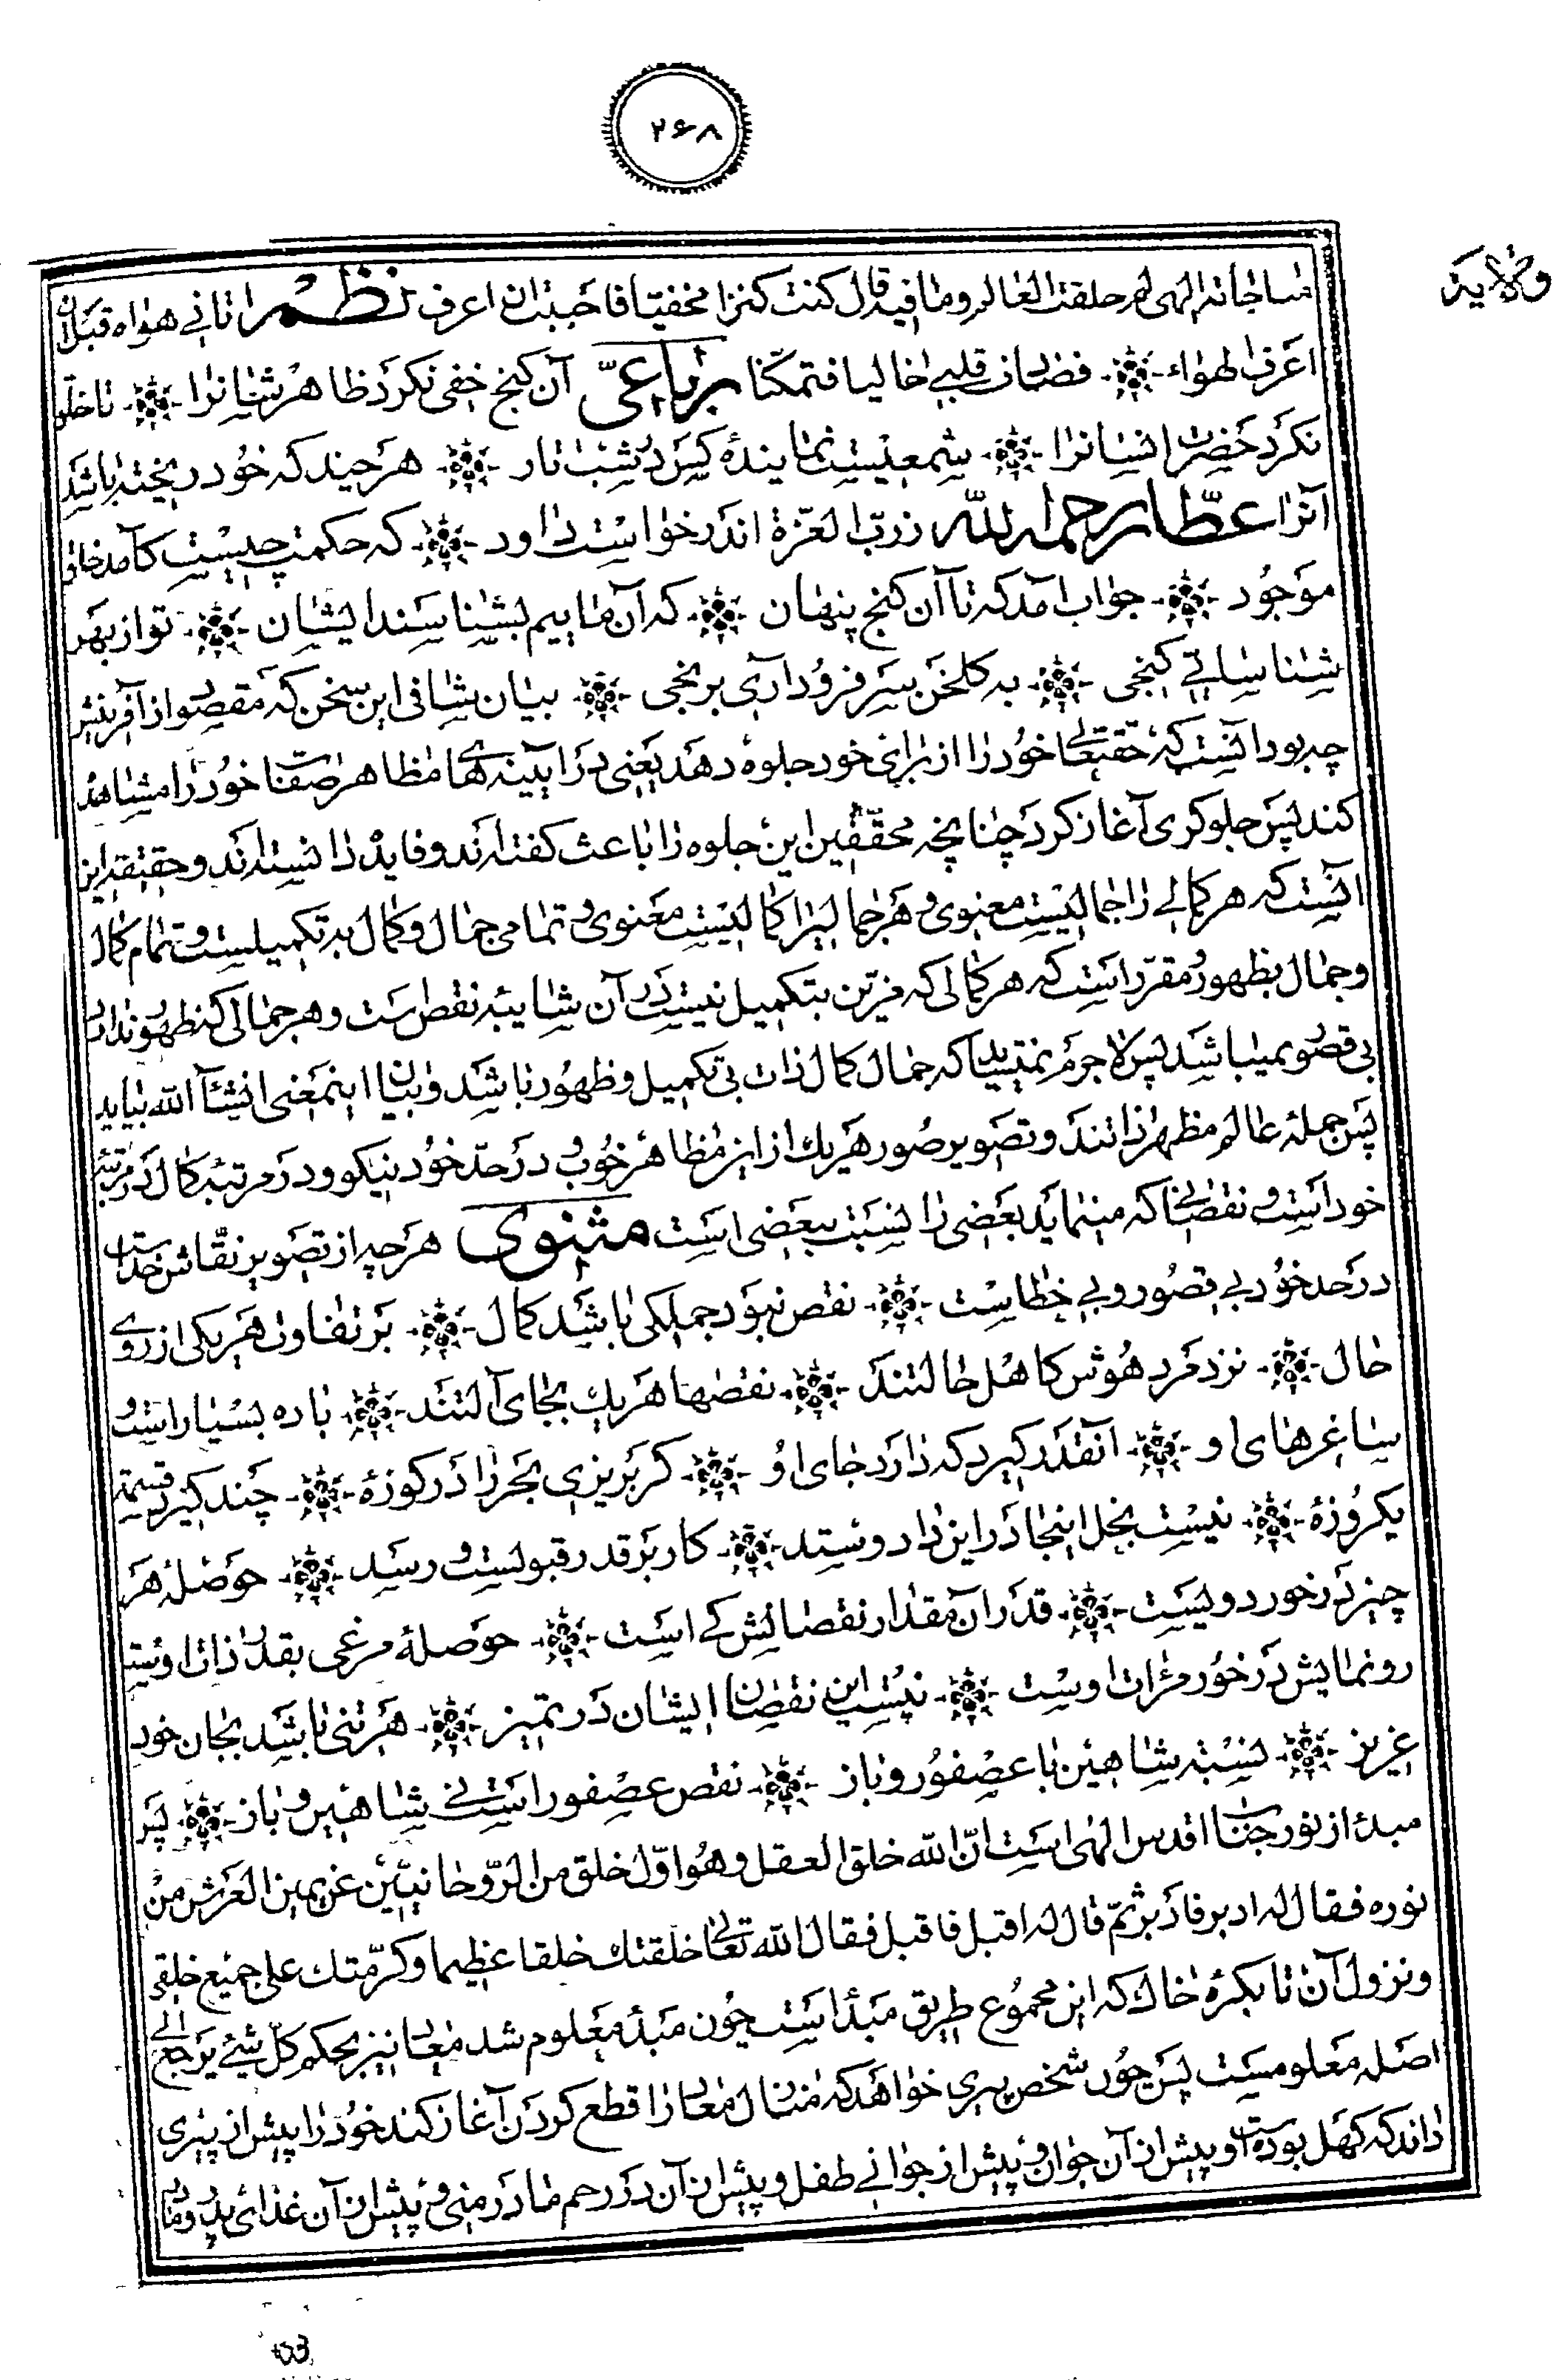 ۲۶۸
ولایة
مناجاته الهی لم خلقت العالم وما فیه قال کنت کنزا مخفیّا فاحببت ان اعرف نظم اتانی هواه قبل ان
اعرف الهواء فصادف قلبی خالیا فتمکّنا رباعیّ آن کنج خفی نکرد ظاهر شانرا تا خلق
نکرد حضرت انسانرا شمعیست نمایندهٔ کس در شب تار هرچند که خود ریخته باشد
آنرا عطّار رحمه الله ز ربّ العزّة اندر خواست داود که حکمت چیست کآمد خلق
موجود جواب آمد که تا آن کنج پنهان که آن مائیم بشناسند ایشان تو از بهر
شناسائی کنجی به کلخن سر فرود آری برنجی بیان شافی این سخن که مقصود از آفرینش
چه بود آنست که حقتعالی خود را از برای خود جلوه دهد یعنی در آیینه های مظاهر صفات خود را مشاهده
کند پس جلوکری آغاز کرد چنانچه محقّقین این جلوه را باعث کفته‌اند و فایده دانسته‌اند و حقیقه این
آنست که هر کمالی را جمالیست معنوی و هر جمالیرا کمالیست معنوی و تمامی جمال و کمال به تکمیلست و تمام کمال
و جمال بظهور و مقرّر است که هر کمالی که قرین بتکمیل نیست در آن شایبهٔ نقص است و هر جمالی که ظهور ندارد
بی قصور نمیباشد پس لاجرم نمیباید که جمال کمال ذات بی تکمیل و ظهور باشد و بیان اینمعنی انشآء الله بیاید
پس جملهٔ عالم مظهر ذاتند و تصویر صور هریک از این مظاهر خوب و در حدّ خود نیکو و در مرتبه کمال در مرتبهٔ
خود است و نقصانی که مینماید بعضی را نسبت ببعضی است مثنوی هرچه از تصویر نقّاش خداست
در حد خود بی قصور و بی خطاست نقص نبود جملکی باشد کمال بر تفاوت هریکی از روی
حال نزد مرد هوش کاهل حالتند نقصها هریک بجای آلتند باده بسیار است و
ساغرهای او آنقدر کیرد که دارد جای او کر بریزی بحر را در کوزهٔ چند کیرد قسمت
یکروزهٔ نیست بخل اینجا در این داد و ستد کار بر قدر قبولست و رسد حوصلهٔ هر
چیز در خورد ویست قدر آن مقدار نقصانش کی است حوصلهٔ مرغی بقدر ذات اوست
رونمایش در خور مرات اوست نیست این نقصان ایشان در تمیز هر تنی باشد بجان خود
عزیز نسبته شاهین با عصفور و باز نقص عصفور است نی شاهین و باز پس
مبدء از نور جناب اقدس الهی است انّ الله خلق العقل و هو اوّل خلق من الرّوحانیّین عن یمین العرش من
نوره فقال له ادبر فادبر ثمّ قال له اقبل فاقبل فقال الله تعالی خلقتك خلقا عظیما و کرّمتك علی جمیع خلقی
و نزول آن تا بکرهٔ خاك که این مجموع طریق مبدأ است چون مبدأ معلوم شد معاد نیز بحکم کلّ شیئ یرجع الی
اصله معلومست پس چون شخص پیری خواهد که منازل معاد را قطع کردن آغاز کند خود را پیش از پیری
داند که کهل بوده است و پیش از آن جوان و پیش از جوانی طفل و پیش از آن در رحم مادر منی و پیش از آن غذای پدر و مادر